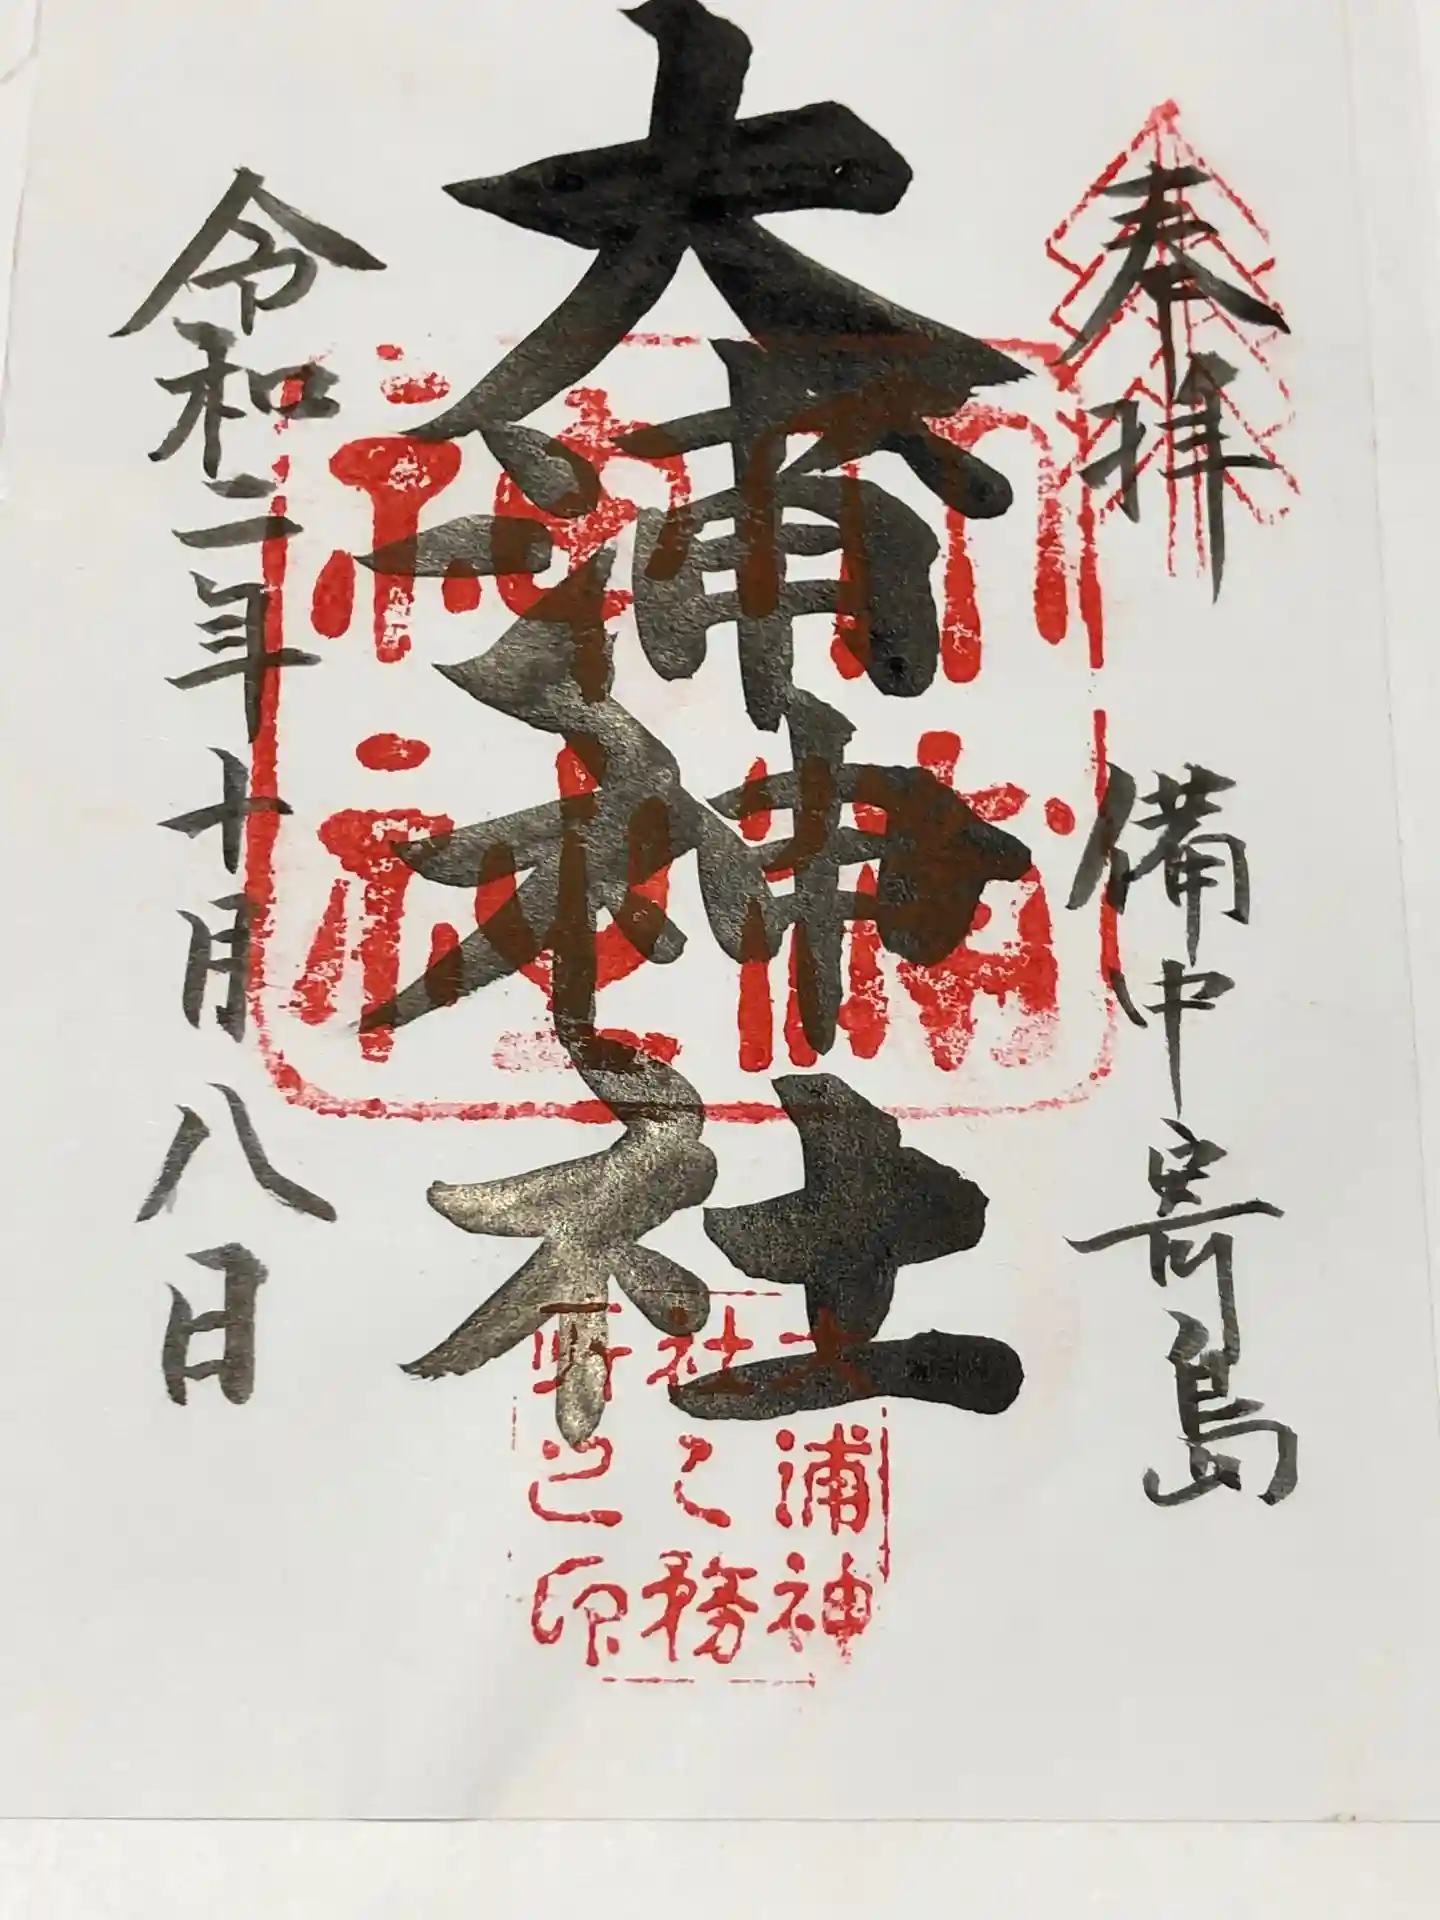 奉拝
備中寄島
大浦神社
大浦神社
大浦神
社之務
所之印
令和二年十月八日